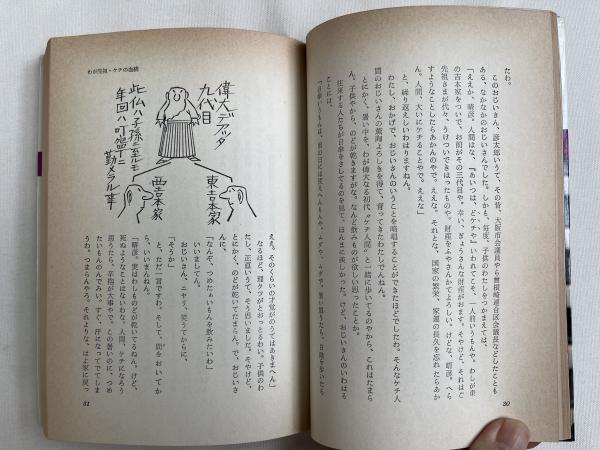 たわ。
このおじいさん、彦太郎いうて、その昔、大阪市会議員やら曾根崎連合区会議長などしたことも
ある、なかなかのおじいさんでした。しかも、毎度、子供のわたしをつかまえては、
「ええか、晴彦、人間はな、『あいつは、どケチや』いわれてこそ、一人前いうもんや。わしが東
の吉本家をついで、お前がその三代目や。幸い、ぎょうさんな財産がおます。そやけど、それはご
先祖さまが代々、うけついできはったものや。財産をふやさんかてよろし。けどな、晴彦、へら
すようなことしたらあかんのやで。ええな。それとな、国家の繁栄、家運の長久を忘れたらあか
ん。人間、大いにケチることやで、ええな」
と、繰り返しいわはりますねん。
わたし、おかげで、おじいさんのいうことを暗唱することができたほどでしたわ。そんなケチ人
間のおじいさんの薫陶よろしきを得て、育ってきたわたしでんねん。
とにかく、暑い中を、わが偉大なる初代〝ケチ人間〟と一緒に歩いてるのやから、これはたまら
ん。子供やから、のどが乾きますがな。なんど飲みものが欲しい思ったことか。
往来する人たちが日傘をさしてるのを見て、ほんまに羨しかった。けど、おじいさんのいわはる
ことには、
30
わが先祖・ケチの血統
偉大ナデッタ
九代目
此仏ハ子孫ニ至ルモ
年回ハ叮嚀ニ
勤メラル事
東吉本家
西吉本家
ええ。そのくらいの才覚がのうてはあきまへん」
なるほど、理クツがとおっとるわい。子供のわ
たし、正直いうて、そう思いました。そやけど、
とにかく、のどが乾いてたまらん。で、おじいさ
んに、
「なんぞ、つめたぁいもんを飲みたいわ」
いいまして、
おじいさん、ニヤリ、笑うてからに、
「そうか」
と、ただ一言ですわ。そして、間をおいてか
ら、いいまんねん。
「晴彦、実はわしものどが乾いてるねん。けど、
死ぬようなことはないわな。人間、ケチになろう
思うたら、辛抱が大事やで。この暑いのに、つめ
たいものんでみい。すぐ、汗になってでてしま
うわ。つまらんやろ。それよりな、はよ家に戻っ
31